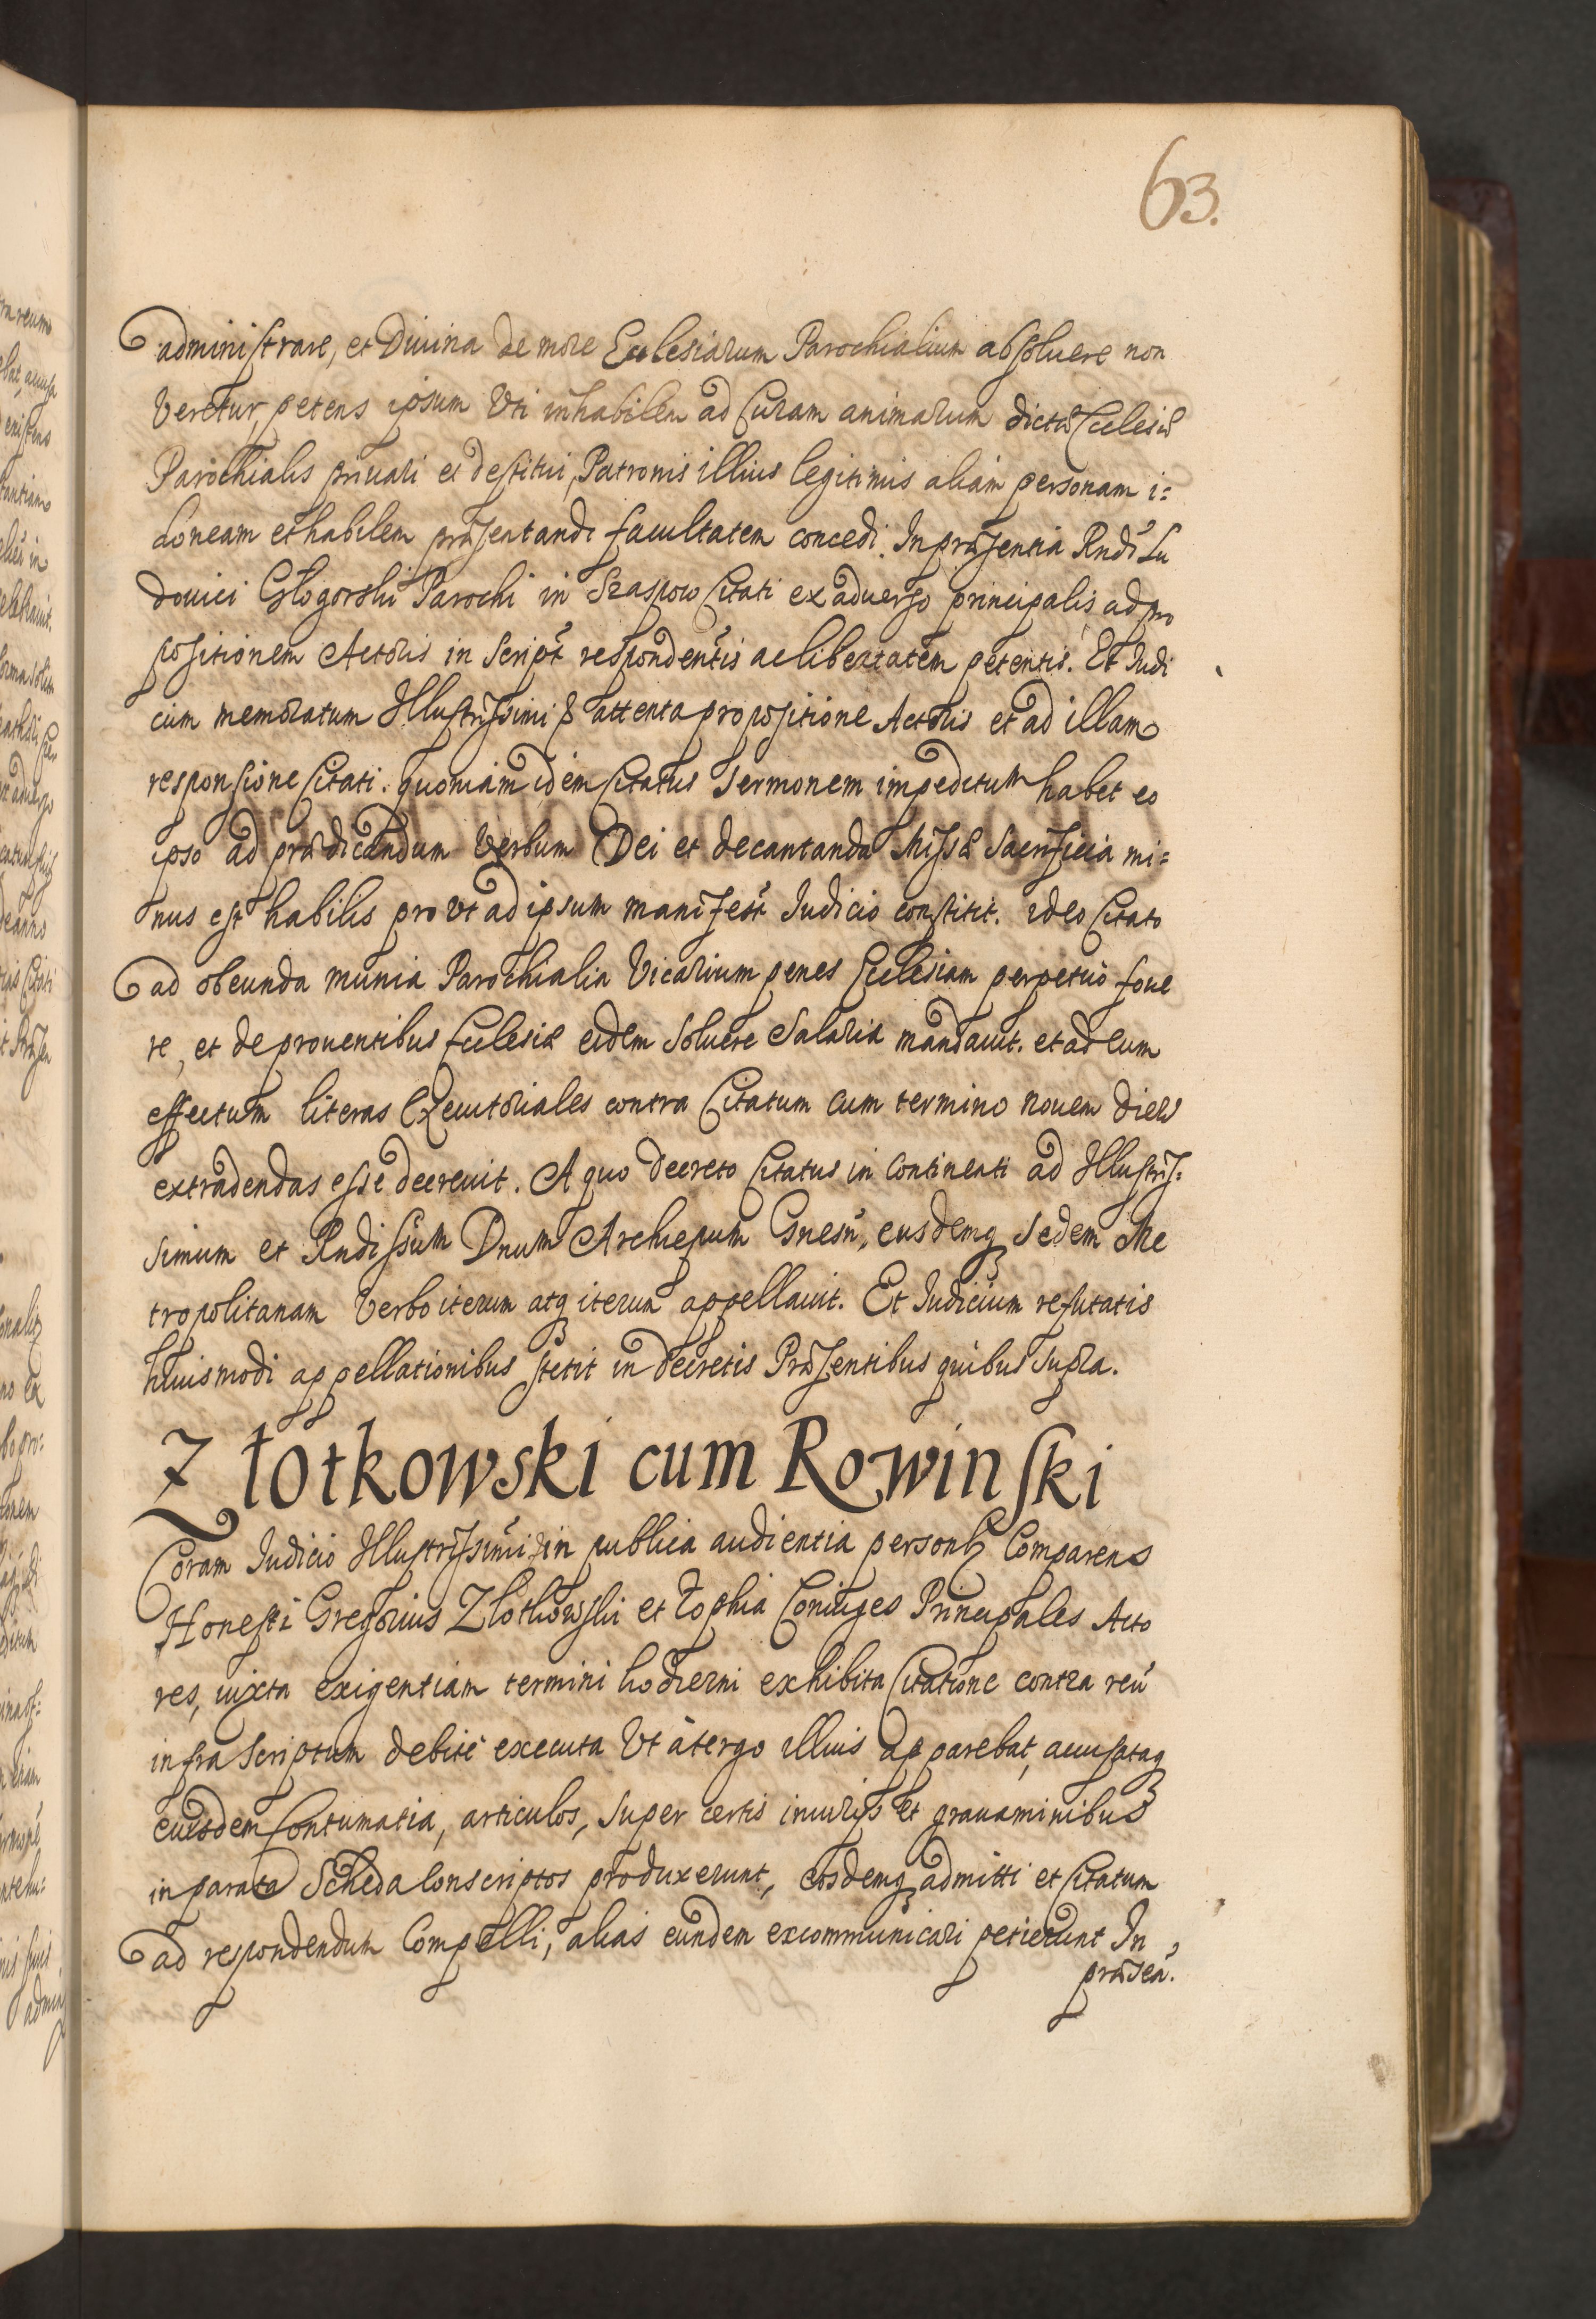 63.
administrare, et Diuina de more Ecclesiarum Parochialium absoluere non
Veretur, petens ipsum Vti inhabilem ad Curam animarum dictæ Ecclesiæ
Parochialis priuari et destitui, Patronis illius legitimis aliam personam i=
doneam et habilem præsentandi facultatem concedi. In præsentia Rndi Lu
douici Glogorski Parochi in Citati ex aduerso principalis ad pro
positionem Actoris in Script respondentis ac libertatem petentis. Et Iudi
cium memoratum Illustrissimi & attenta propositione Actoris et ad illam
responsione Citati. quoniam idem Citatus Sermonem impeditum habet eo
ipso ad prædicandum Verbum Dei et decantanda Missæ Sacrificia mi=
nus est habilis pro vt ad ipsum manifestè Iudicio constitit. ideo Citato
ad obeunda munia Parochialia Vicarium penes Ecclesiam perpetuò foue
re, et de prouentibus Ecclesiæ eidem Soluere Salaria mandauit. et ad eum
effectum literas Executoriales contra Citatum cum termino nouem dierũ
extradendas esse decreuit. A quo decreto Citatus in Continenti ad Illustris=
simum et Rndissum Dnum Archiepum Gnesn, eiusdemq Sedem Me
tropolitanam Verbo iterum atq iterum appellauit. Et Iudicium refutatis
huiusmodi appellationibus stetit in decretis Præsentibus quibus Supra.
Złotkowski cum Rowinski
Coram Iudicio Illustrissimi & in publica audientia personlr Comparens
Honesti Gregorius Zlothowski et Zophia Coniuges Principales Acto
res, iuxta exigentiam termini hodierni exhibita Citatione contra reũ
infra Scriptum debitè executa Vt à tergo illius apparebat, accusataq
eiusdem Contumatia, articulos, Super certis iniurijs et grauaminibus
in parata Scheda Conscriptos produxerunt, eosdemq admitti et Citatum
ad respondendum Compelli, alias eundem excommunicari petierunt In
præsen.